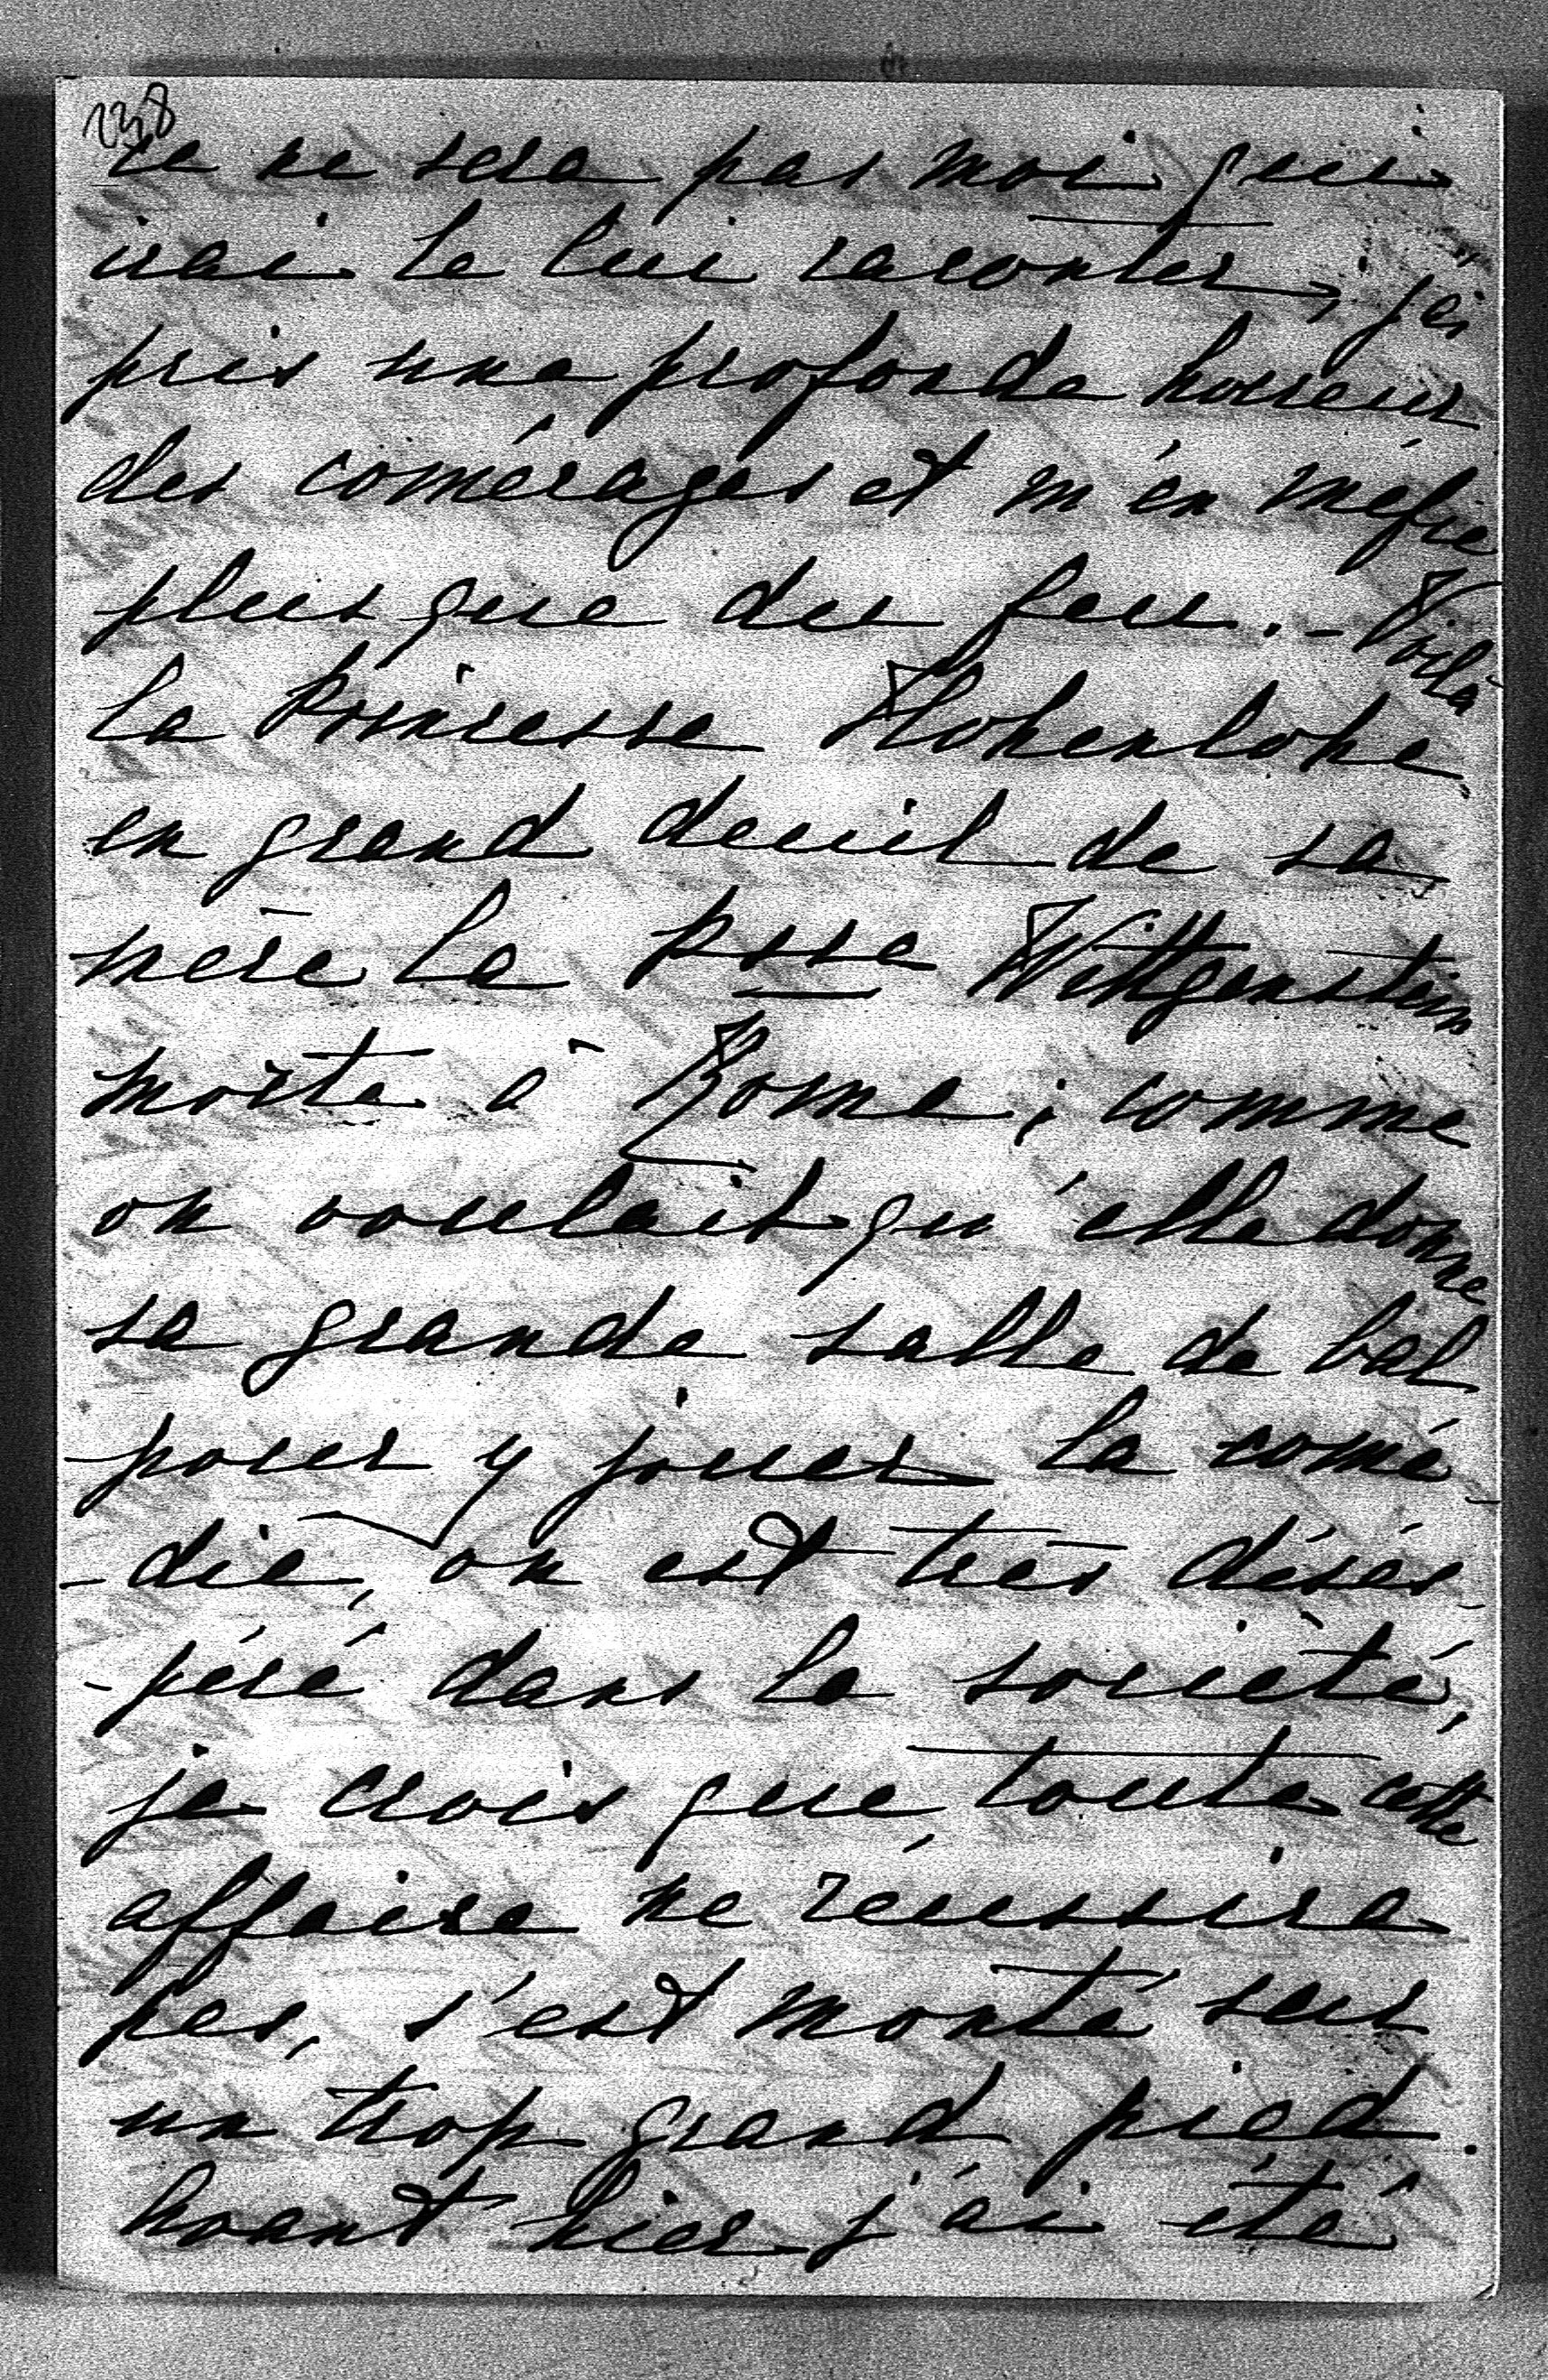 238
ce ne sera pas moi qui
irai le lui raconter, j'ai
pris une profonde horreur
des comérages et m'en méfie
plus que du feu. - Voilà
la Princesse Hohenlohe
en grand deuil de sa
mère la Psse Wittgenstein
morte à Rome; comme
on voulait qu'elle donne
sa grande salle de bal
pour y jouer la comé-
-die, on est très déses-
-péré dans la société,
je crois que, toute cette
affaire ne réussira
pas, s'est monté sur
un trop grand pied.
hvant hier j'ai été